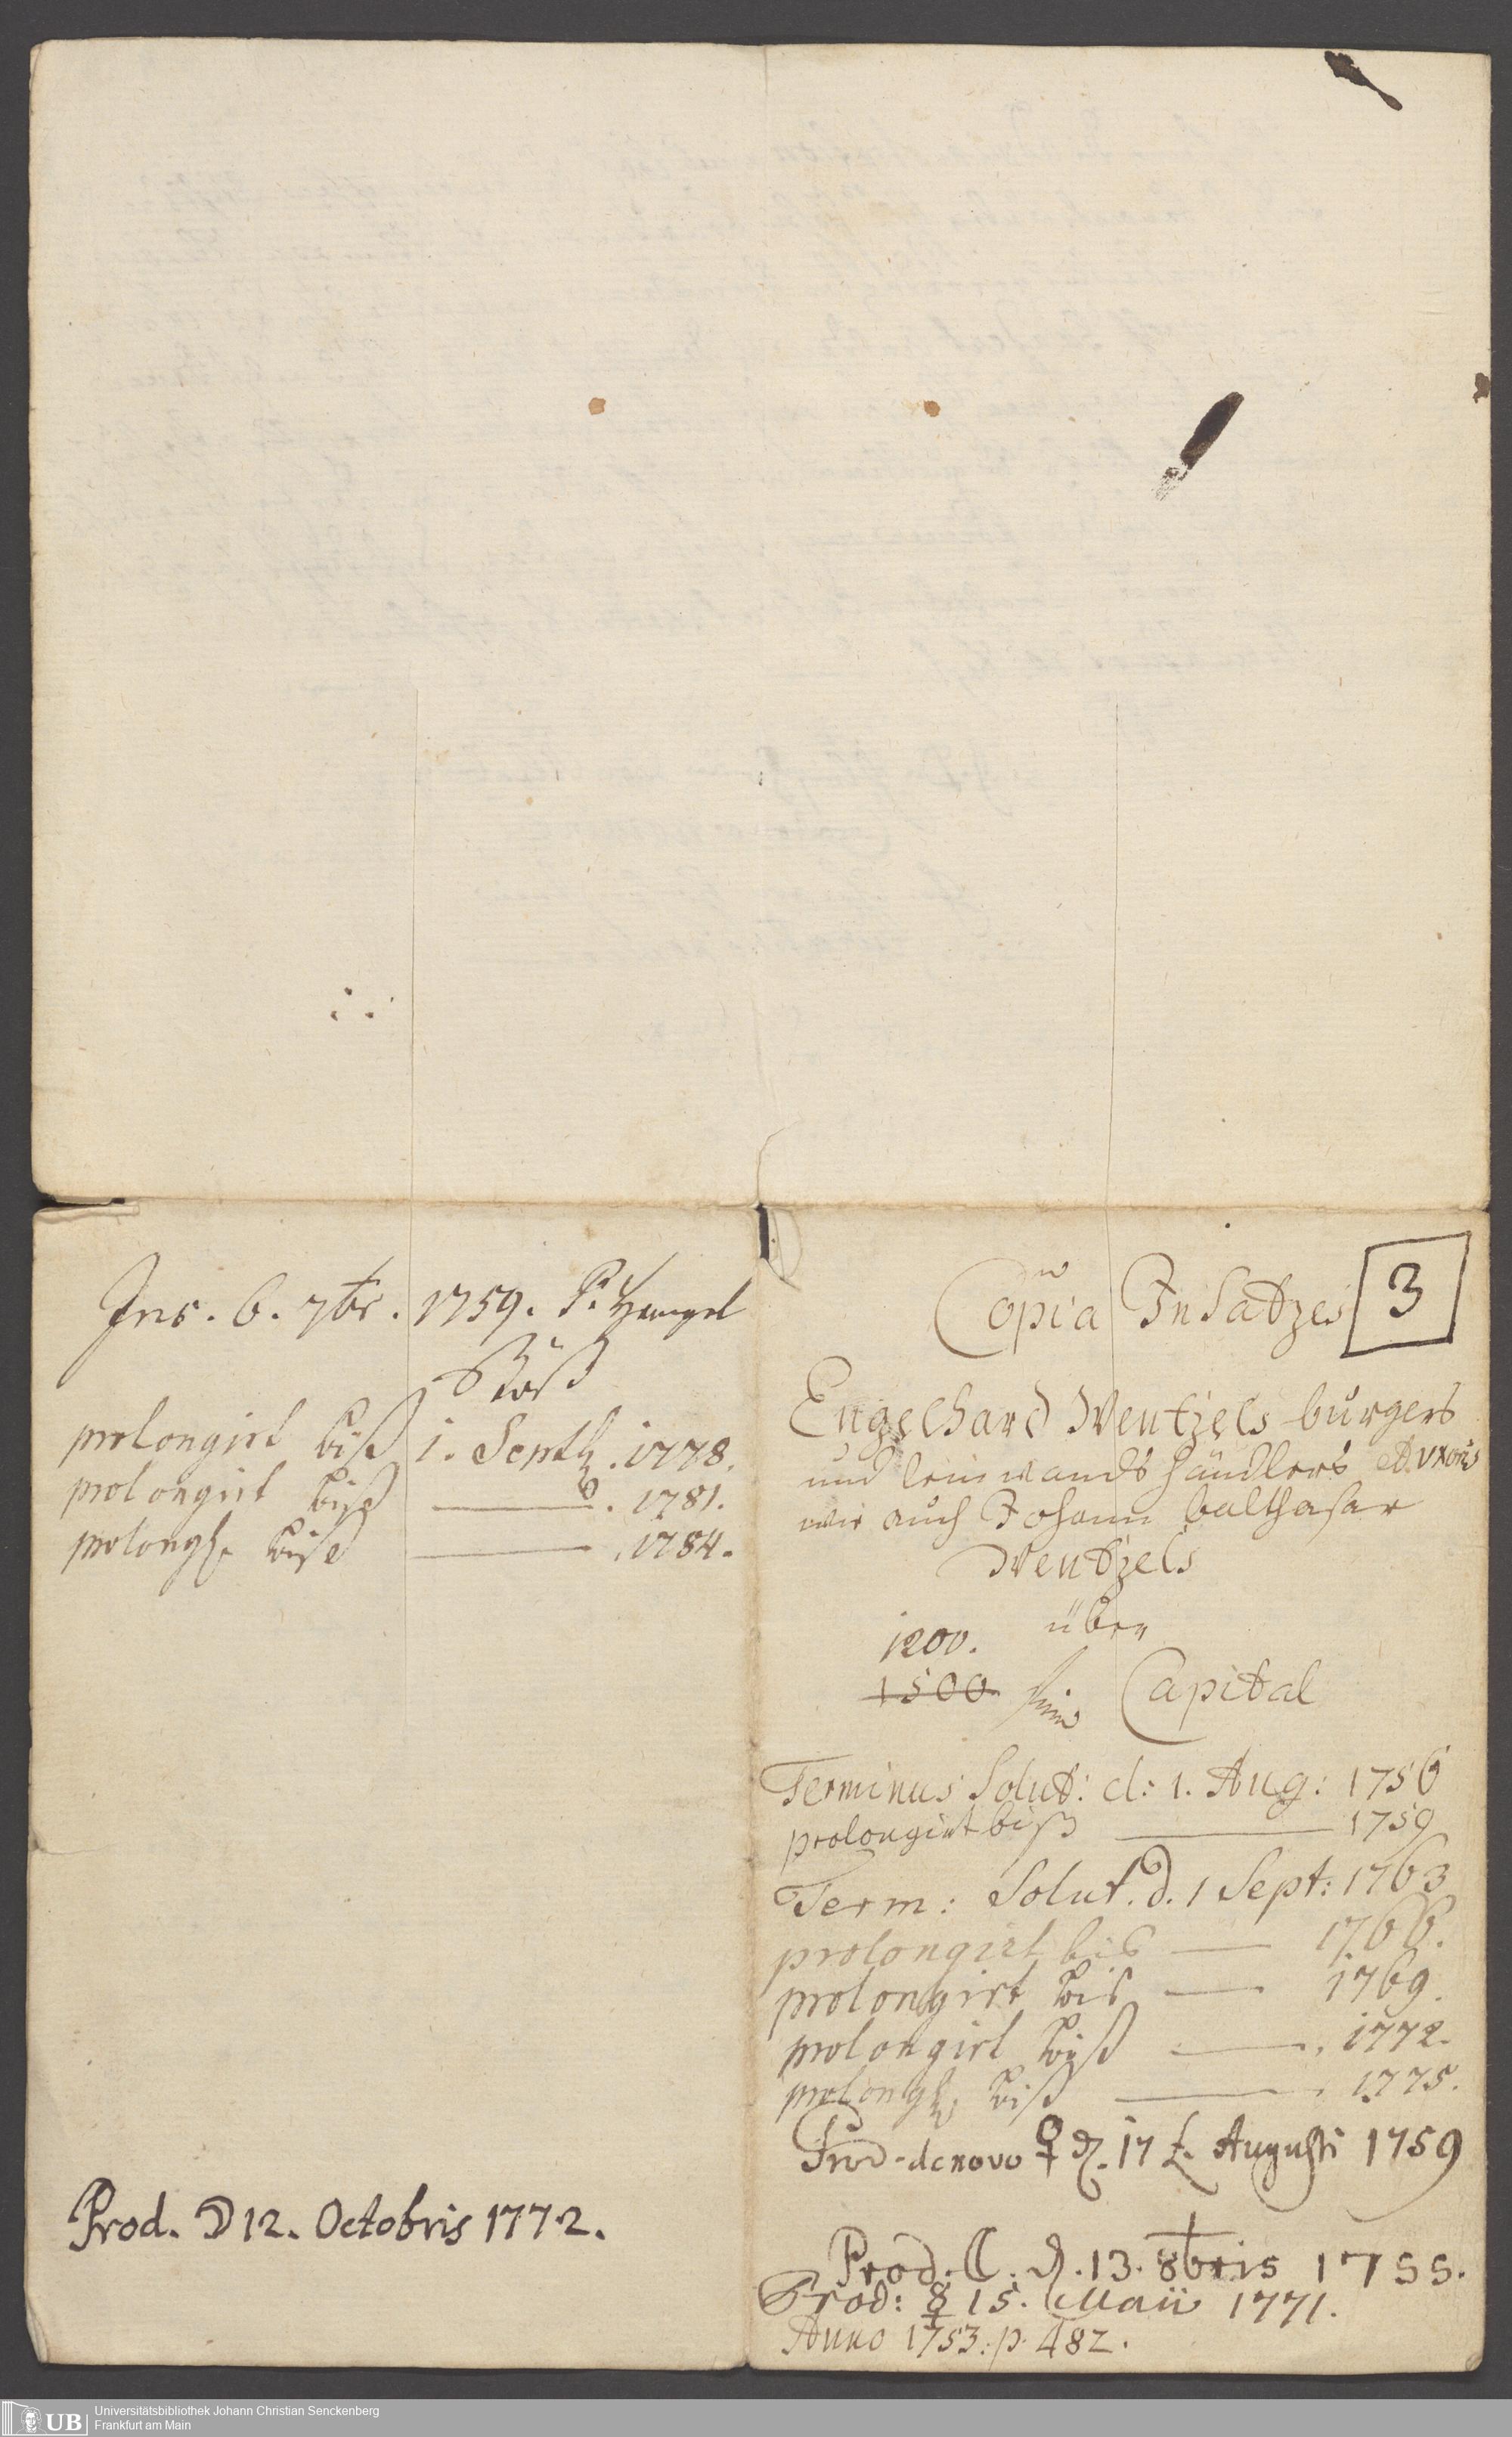 Ins. 6. 7br. 1759. P. Hengel
prolongirt biß 1. Septb. 1778.
prolongirt biß ——— . 1781.
prolong. biß ——— . 1784.
Prod. ☽ 12. Octobris 1772.
Copia Insatzes 3
Engelhard Wentzels burgers
und leinwandts händlers et uxoris
wie auch Johann balthasar
Wentzels
über
1200.
1500 Capital
Terminus Solut: d: 1. Aug: 1756
prolongirt biß ——— 1759
Term: Solut. d. 1 Sept: 1763
prolongirt bis —— 1766.
prolongirt bis —— 1769.
prolongirt biß ——. 1772.
prolong. biß ———. 1775.
Prod. denovo ♀ d. 17 t. Augusti 1759
Prod. ☾. d. 13. 8bris 1755.
Prod: ☿ 15. Maii 1771.
Anno 1753. p. 482.
UB Universitätsbibliothek Johann Christian Senckenberg
Frankfurt am Main